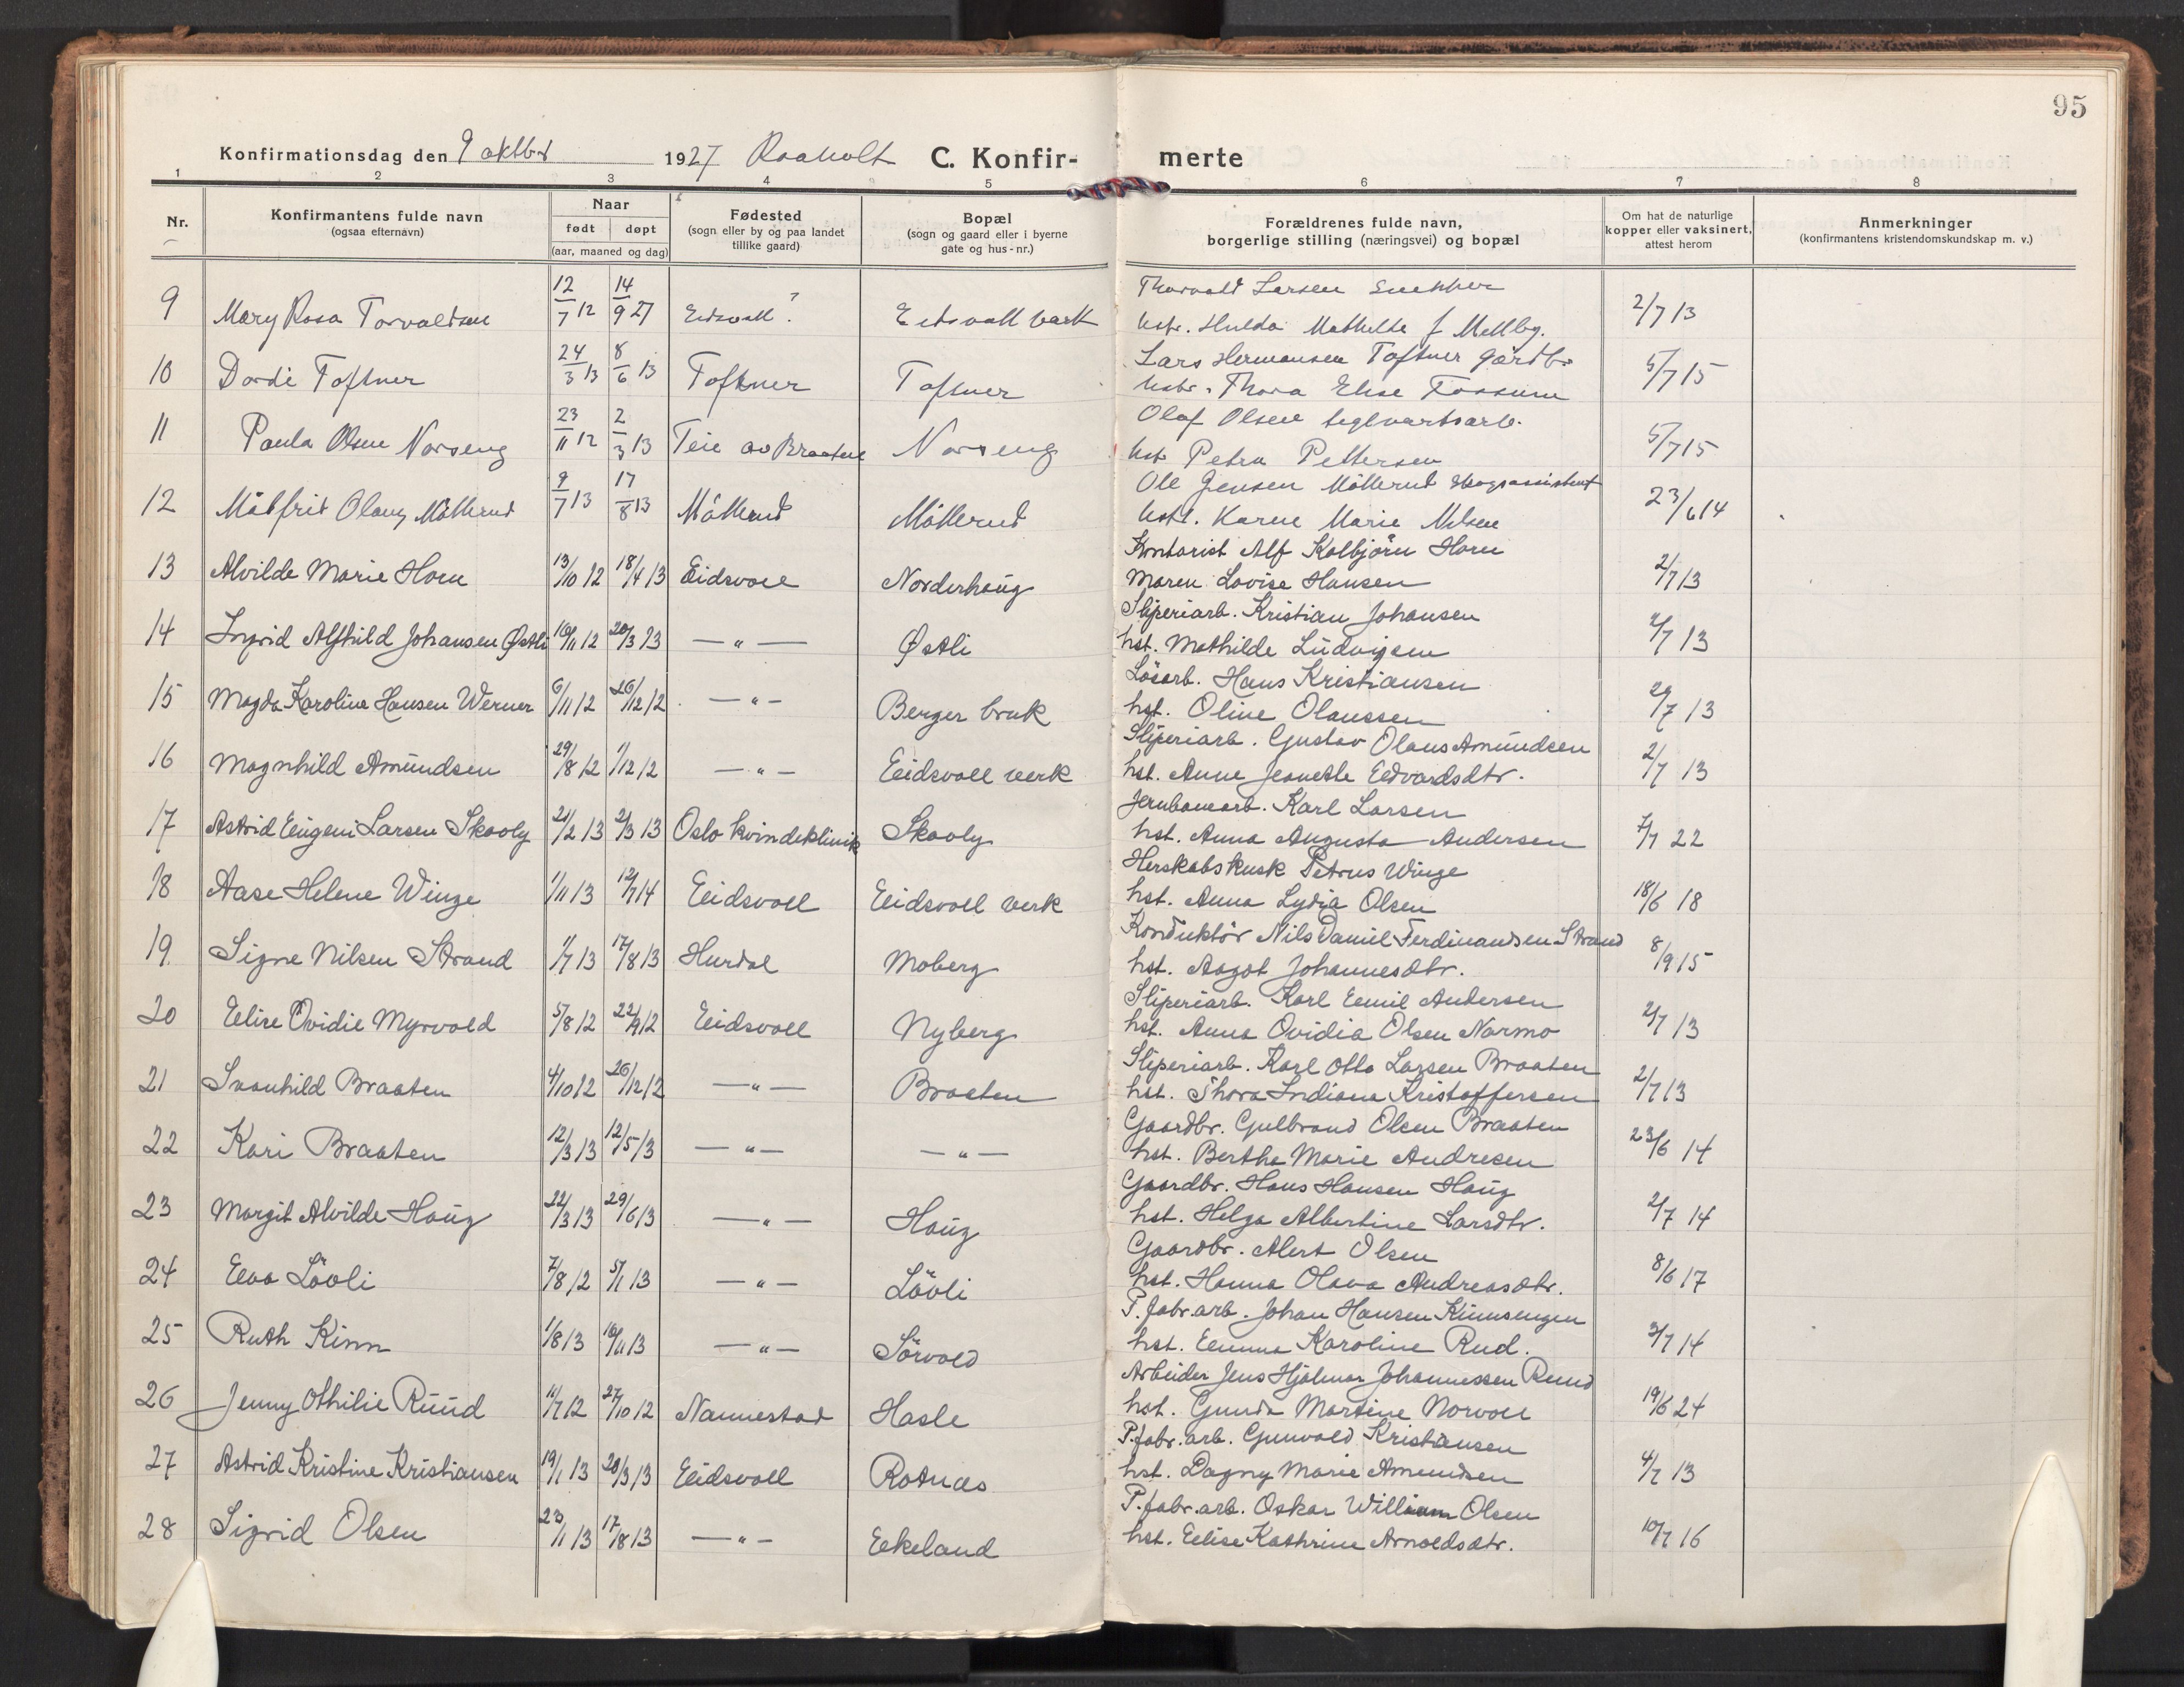 95
Konfirmationsdag den 9 oktbr 1927 Raaholt C. Konfir- merte
1 2 3 4 5 6 7 8
Nr. Konfirmantens fulde navn Naar Fødested Bopæl Forældrenes fulde navn, Om hat de naturlige Anmerkninger
(ogsaa efternavn) født døpt (sogn eller by og paa landet (sogn og gaard eller i byerne borgerlige stilling (næringsvei) og bopæl kopper eller vaksinert, (konfirmantens kristendomskundskap m. v.)
(aar, maaned og dag) tillike gaard) gate og hus-nr.) attest herom
Thorvald Larsen Snekker
9 Mary Rosa Torvaldsen 12/7 12 14/9 27 Eidsvoll? Eidsvoll værk hstr. Hulda Mathilde f Mellby. 2/7 13
Lars Hermansen Toftner gårdb.
10 Dordi Toftner 24/3 13 8/6 13 Toftner Toftner hstr. Thora Elise Fossum 5/7 15
Olaf Olsen teglverksarb.
11 Paula Olsen Norseng 23/11 12 2/3 13 Teie av Braaten Norseng hst. Petra Pettersen 5/7 15
Ole Jensen Möllerud
12 Målfrid Olaug Möllerud 9/7 13 17/8 13 Möllerud Möllerud hst. Karen Marie Nilsen 23/6 14
Kontorist Alf Kolbjörn Horn
13 Alvilde Marie Horn 13/10 12 18/4 13 Eidsvoll Norderhaug Maren Lovise Hansen 2/7 13
Sliperiarb. Kristian Johansen
14 Ingrid Alfhild Johansen Østli 10/11 12 20/3 13 — " — Østli hst. Mathilde Ludvigsen 2/7 13
Lösarb. Hans Kristiansen
15 Magda Karoline Hansen Werner 6/11 12 26/12 12 — " — Berger bruk hst. Oline Olaussen 29/7 13
Sliperiarb. Gustav Olaus Amundsen
16 Magnhild Amundsen 29/8 12 1/12 12 — " — Eidsvoll verk hst. Anne Jeanette Edvardsdtr. 2/7 13
Jernbanearb. Karl Larsen
17 Astrid Eugeni Larsen Skovly 21/2 13 2/3 13 Oslo kvindeklinik Skovly hst. Anna Augusta Andersen 7/7 22
Herskabskusk Petrus Winge
18 Aase Helene Winge 1/11 13 12/7 14 Eidsvoll Eidsvoll verk hst. Anna Lydia Olsen 18/6 18
Konduktör Nils Daniel Ferdinandsen Strand
19. Signe Nilsen Strand 1/7 13 17/8 13 Hurdal Moberg hst. Aagot Johannesdtr. 8/9 15
Sliperiarb. Karl Emil Andersen
20 Elise Ovidie Myrvold 5/8 12 22/9 12 Eidsvoll Nyberg hst. Anna Ovidia Olsen Narmo 2/7 13
Sliperiarb. Karl Otto Larsen Braaten
21 Svanhild Braaten 4/10 12 26/12 12 — " — Braaten hst. Thora Indiana Kristoffersen 2/7 13
Gaardbr. Gulbrand Olsen Braaten
22 Kari Braaten 12/3 13 12/5 13 — " — — " — hst. Berthe Marie Andresen 23/6 14
Gaardbr. Hans Hansen Haug
23 Margit Alvilde Haug 22/3 13 29/6 13 — " — Haug hst. Helga Albertine Larsdtr. 2/7 14
Gaardbr. Alert Olsen
24 Eva Lövli 7/8 12 5/1 13 — " — Lövli hst. Hanna Olava Andreasdtr. 8/6 17
P. fabr. arb. Johan Hansen Kinnsengen
25 Ruth Kinn 1/8 13 16/11 13 — " — Sörvold hst. Emma Karoline Rud. 3/7 14
Arbeider Jens Hjalmar Johannessen Ruud
26 Jenny Othilie Ruud 11/7 12 27/10 12 Nannestad Hasle hst. Gunda Martine Norvoll 19/6 24
P. fabr. arb. Gunvald Kristiansen
27 Astrid Kristine Kristiansen 19/1 13 20/3 13 Eidsvoll Rotnæs hst. Dagny Marie Amundsen 4/7 13
P. fabr. arb. Oskar William Olsen
28 Sigrid Olsen 23/1 13 17/8 13 — " — Eekeland hst. Elise Kathrine Arnoldsdtr. 10/7 16